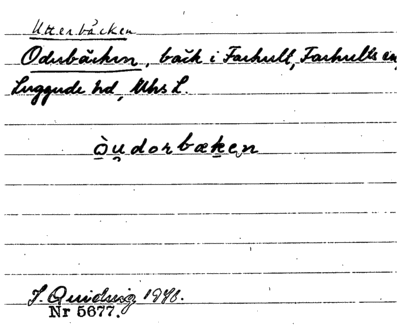 Utterbäcken
Odurbäcken, bäck i Farhult, Farhults sn,
Luggude hd, Mhs L.
òu̯dorbæken
J. Quidwig 1976.
Nr 5677.